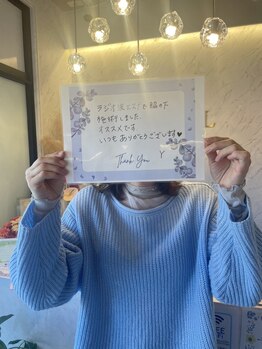 ラジオ波エステと脇の下
を施術しました
オススメです
いつもありがとうございます♥
Thank You
Y